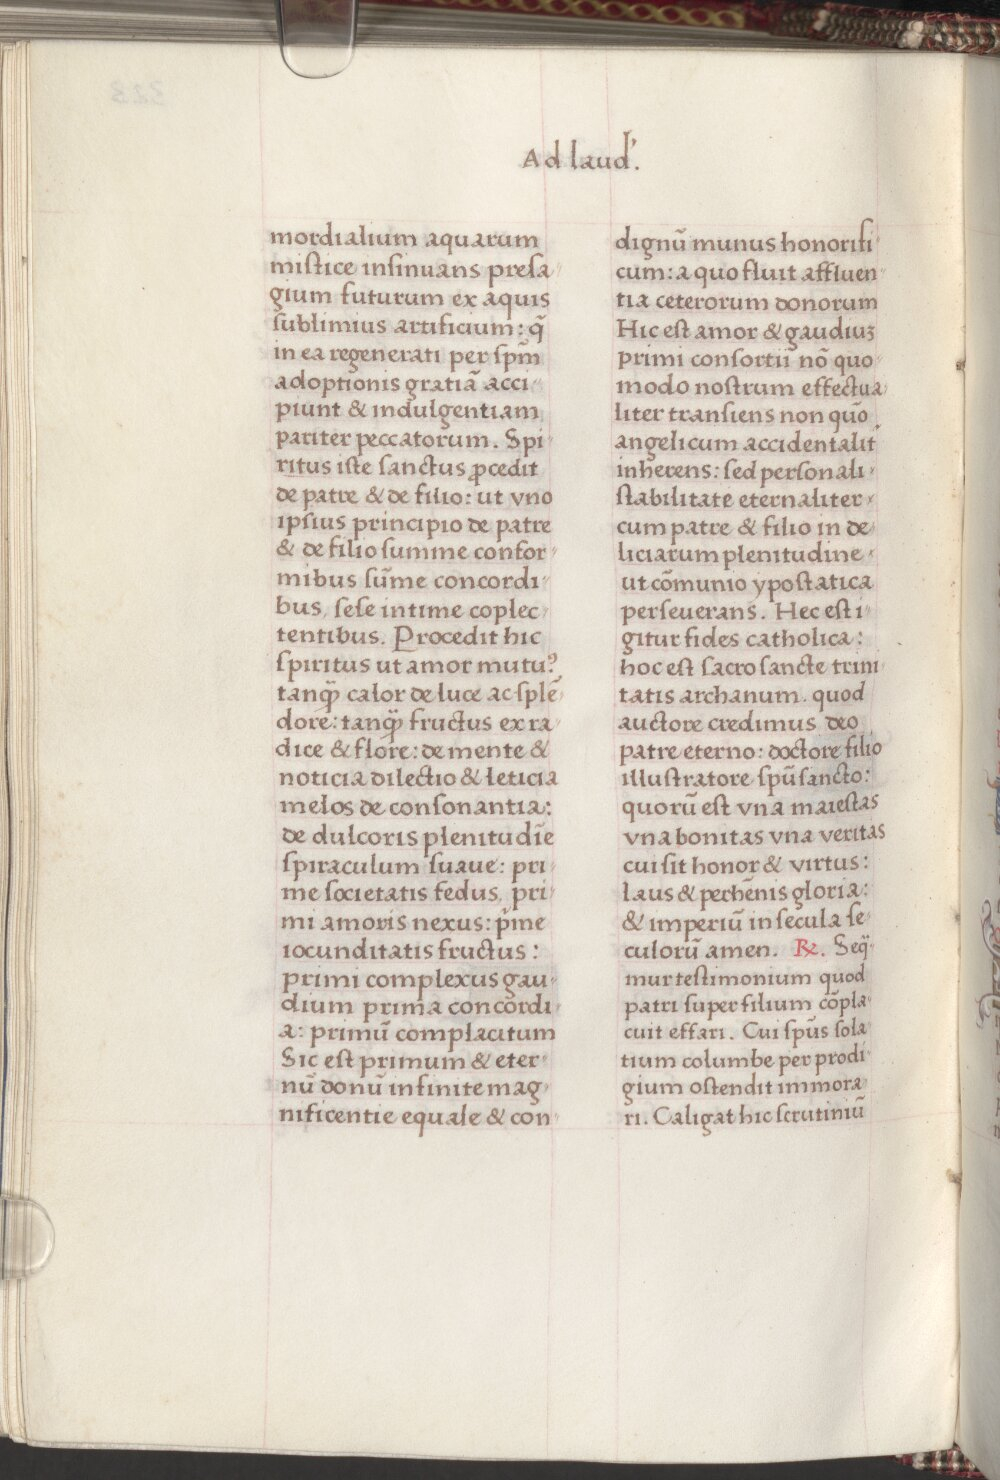 Ad laud'.
mordialium aquarum
mistice insinuans presa
gium futurum ex aquis
sublimius artificium: q̃
in ea regenerati per spm̃
adoptionis gratiã acci
piunt & indulgentiam
pariter peccatorum. Spi
ritus iste sanctus ꝓcedit
de patre & de filio: ut vno
ipsius principio de patre
& de filio summe confor
mibus sum̃e concordi
bus, sese intime coplec
tentibus. Procedit hic
spiritus ut amor mutuꝰ
tanꝙ̃ calor de luce ac splẽ
dore: tanꝙ̃ fructus ex ra
dice & flore: de mente &
noticia dilectio & leticia
melos de consonantia:
de dulcoris plenitudĩe
spiraculum suaue: pri
me societatis fedus, pri
mi amoris nexus: p̃me
iocunditatis fructus:
primi complexus gau
dium prima concordi
a: primũ complacitum
Sic est primum & eter
nũ donũ infinite mag
nificentie equale & con
dignũ munus honorifi
cum: a quo fluit affluen
tia ceterorum donorum
Hic est amor & gaudiuꝫ
primi consortii nõ quo
modo nostrum effectua
liter transiens non quõ
angelicum accidentalit̾
inherens: sed personali
stabilitate eternaliter
cum patre & filio in de
liciarum plenitudine
ut cõmunio ypostatica
perseuerans. Hec est i
gitur fides catholica:
hoc est sacro sancte trini
tatis archanum. quod
auctore credimus deo
patre eterno: doctore filio
illustratore spũ sancto:
quorũ est vna maiestas
vna bonitas vna veritas
cui sit honor & virtus:
laus & perhẽnis gloria:
& imperiũ in secula se
culorũ amen. ℞. Seq̃
mur testimonium quod
patri super filium cõpla
cuit effari. Cui spũs sola
tium columbe per prodi
gium ostendit immora
ri. Caligat hic scrutiniũ